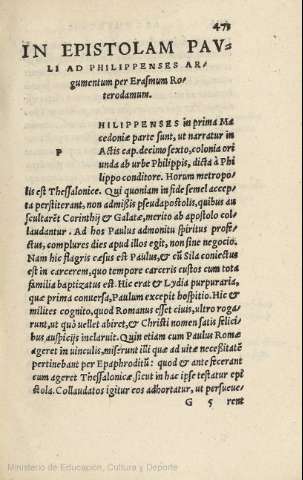 473
IN EPISTOLAM PAV-
LI AD PHILIPPENSES AR-
gumentum per Erasmum Ro-
terodamum.
PHILIPPENSES in prima Ma
cedoniæ parte sunt, ut narratur in
Actis cap. decimo sexto, colonia ori
unda ab urbe Philippis, dicta à Phi
lippo conditore. Horum metropo
lis est Thessalonice. Qui quoniam in fide semel accep
ta perstiterant, non admissis pseudapostolis, quibus au
scultarēt Corinthij & Galatæ, merito ab apostolo col
laudantur. Ad hos Paulus admonitu spiritus profe
ctus, complures dies apud illos egit, non sine negocio.
Nam hic flagris cæsus est Paulus, & cū Sila coniectus
est in carcerem, quo tempore carceris custos cum tota
familia baptizatus est. Hic erat & Lydia purpuraria,
quæ prima conuersa, Paulum excepit hospitio. Hic &
milites cognito, quod Romanus esset ciuis, ultro roga-
runt, ut quò uellet abiret, & Christi nomen satis felici
bus auspicijs inclaruit. Quin etiam cum Paulus Romæ
ageret in uinculis, miserunt illi quæ ad uitæ necessitatē
pertinebant per Epaphroditū: quod & ante fecerant
cum ageret Thessalonicæ, sicut in hac ipse testatur epi
stola. Collaudatos igitur eos adhortatur, ut perseue-
G 5 rent
Ministerio de Educación, Cultura y Deporte